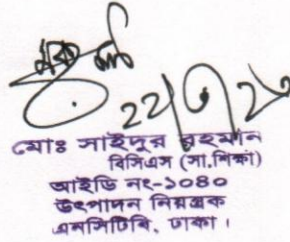 ২২/৩/২৩
মোঃ সাইদুর রহমান
বিসিএস (সা.শিক্ষা)
আইডি নং-১০৪০
উৎপাদন নিয়ন্ত্রক
এনসিটিবি, ঢাকা।